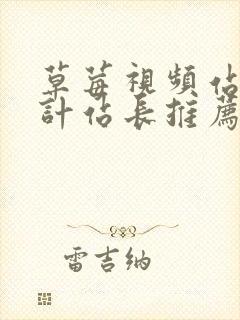 草莓視頻佔
計佔長推薦
雷吉纳